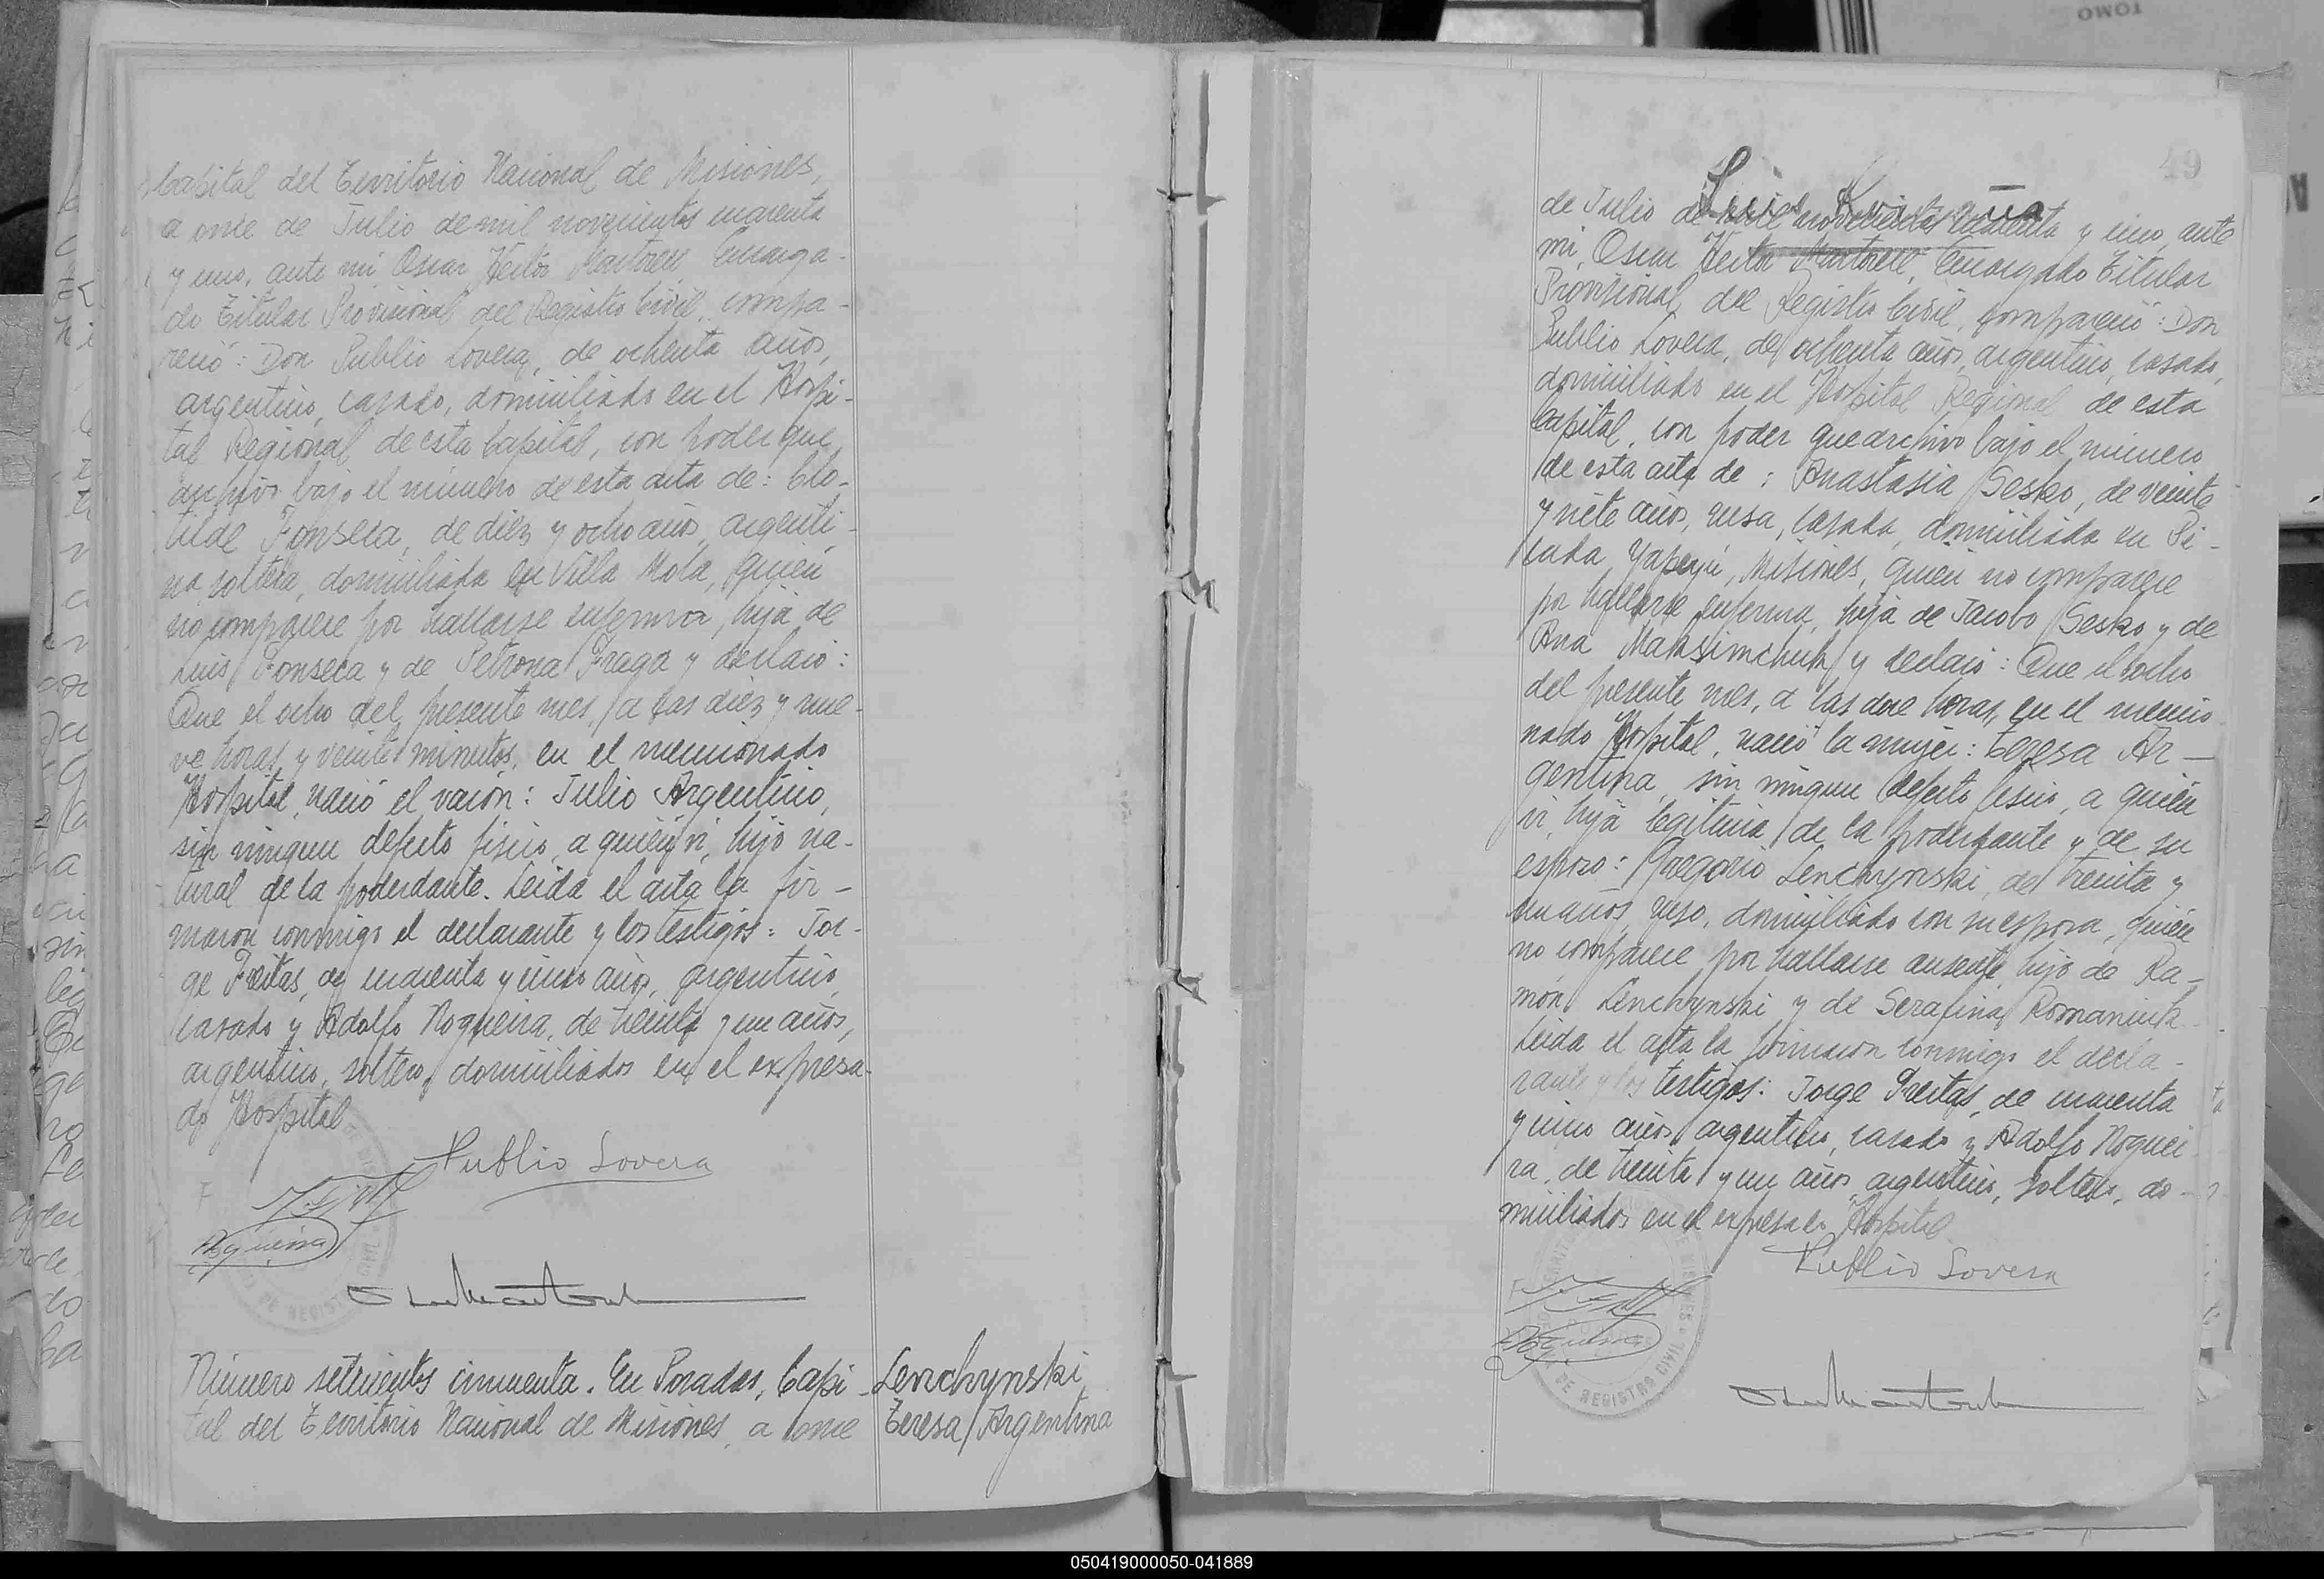 Capital del Territorio Nacional de Misiones,
a once de Julio de mil novecientos cuarenta
y uno, ante mi, Oscar Héctor Martorell, Encarga-
do Titular Provisional del Registro Civil, compa-
reció: Don Publio Lovera, de ochenta años,
argentino, casado, domiciliado en el Hospi-
tal Regional de esta Capital, con poder que
archivo bajo el número de esta acta de: Clo-
tilde Fonseca, de diez y ocho años, argenti-
na, soltera, domiciliada en Villa Mola, quien
no comparece por hallarse enferma, hija de
Luis Fonseca y de Petrona Fraga y declaró:
Que el ocho del presente mes, a las diez y nue-
ve horas y veinte minutos, en el mencionado
Hospital, nació el varón: Julio Argentino,
sin ningun defecto fisico, a quien ví, hijo na-
tural de la poderdante. Leida el acta la fir-
maron conmigo el declarante y los testigos: Jor-
ge Freitas, de cuarenta y cinco años, argentino,
casado y Adolfo Nogueira, de treinta y un años,
argentino, soltero, domiciliados en el expresa-
do Hospital
Publio Lovera
Nogueira
Número setecientos cincuenta. En Posadas, Capi-
tal del Territorio Nacional de Misiones, a once
Lenchynski
Teresa Argentina
TOMO
49
de Julio de mil novecientos cuarenta y uno, ante
mi, Oscar Héctor Martorell, Encargado Titular
Provisional del Registro Civil, compareció: Don
Publio Lovera, de ochenta años, argentino, casado,
domiciliado en el Hospital Regional de esta
Capital, con poder que archivo bajo el número
de esta acta de: Anastasia Sesko, de veinte
y siete años, rusa, casada, domiciliada en Pi-
cada Yapeyú, Misiones, quien no comparece
por hallarse enferma, hija de Jacobo Sesko y de
Ana Maksimchuk y declaró: Que el ocho
del presente mes, a las doce horas, en el mencio
nado Hospital, nació la mujer: Teresa Ar-
gentina, sin ningun defecto fisico, a quien
ví, hija legitima de la poderdante y de su
esposo: Gregorio Lenchynski, de treinta y
un años, ruso, domiciliado con su esposa, quien
no comparece por hallarse ausente, hijo de Ra-
món Lenchynski y de Serafina Romaniuk.
Leida el acta la firmaron conmigo el decla-
rante y los testigos: Jorge Freitas, de cuarenta
y cinco años, argentino, casado y Adolfo Noguei
ra, de treinta y un años, argentino, soltero, do-
miciliados en el expresado Hospital
Publio Lovera
Nogueira
DE REGISTRO CIVIL
050419000050-041889